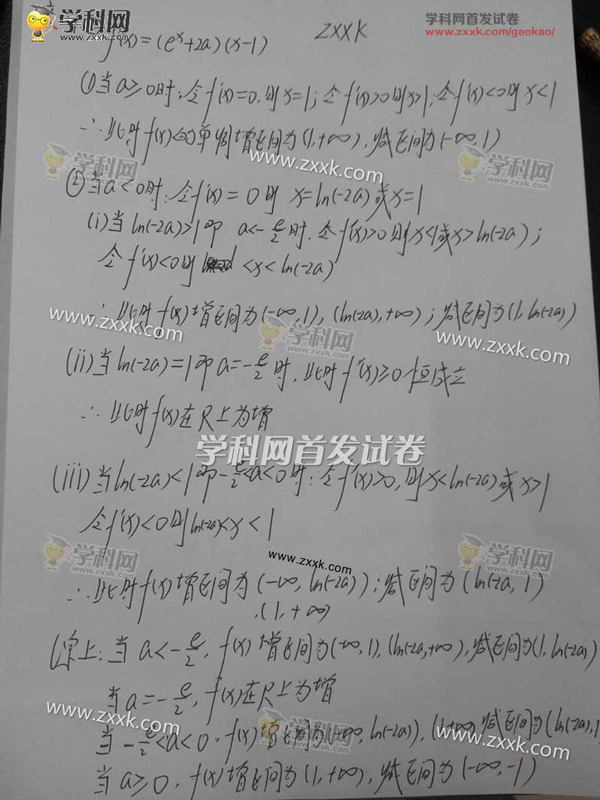 学科网
www.zxxk.com
学科网首发试卷
www.zxxk.com/gaokao/
ZXXK
f'(x)=(e^x+2a)(x-1)
①当a≥0时:令f'(x)=0,则x=1;令f'(x)>0则x>1,令f'(x)<0则x<1
∴此时f(x)的单调增区间为(1,+∞),减区间为(-∞,1)
学科网
www.zxxk.com
学科网
②当a<0时:令f'(x)=0则 x=ln(-2a)或x=1
(i)当ln(-2a)>1即 a<-e/2时,令f'(x)>0则x<1或x>ln(-2a);
令f'(x)<0则 1<x<ln(-2a)
∴此时f(x)增区间为(-∞,1),(ln(-2a),+∞);减区间为(1,ln(-2a))
www.zxxk.com
学科网
www.zxxk.com
(ii)当ln(-2a)=1即a=-e/2时,此时f'(x)≥0恒成立
∴此时f(x)在R上为增
学科网首发试卷
(iii)当ln(-2a)<1即-e/2<a<0时:令f'(x)>0,则x<ln(-2a)或x>1
令f'(x)<0则ln(-2a)<x<1
学科网
www.zxxk.com
学科网
∴此时f(x)增区间为(-∞,ln(-2a));减区间为(ln(-2a,1)
,(1,+∞)
综上:当a<-e/2,f(x)增区间为(-∞,1),(ln(-2a,+∞),减区间为(1,ln(-2a))
当a=-e/2,f(x)在R上为增
学科网
www.zxxk.com
学科网
www.zxxk.com
当-e/2<a<0,f(x)增区间为(-∞,ln(-2a)),(1,+∞),减区间为(ln(-2a),1
当a≥0,f(x)增区间为(1,+∞),减区间为(-∞,-1)